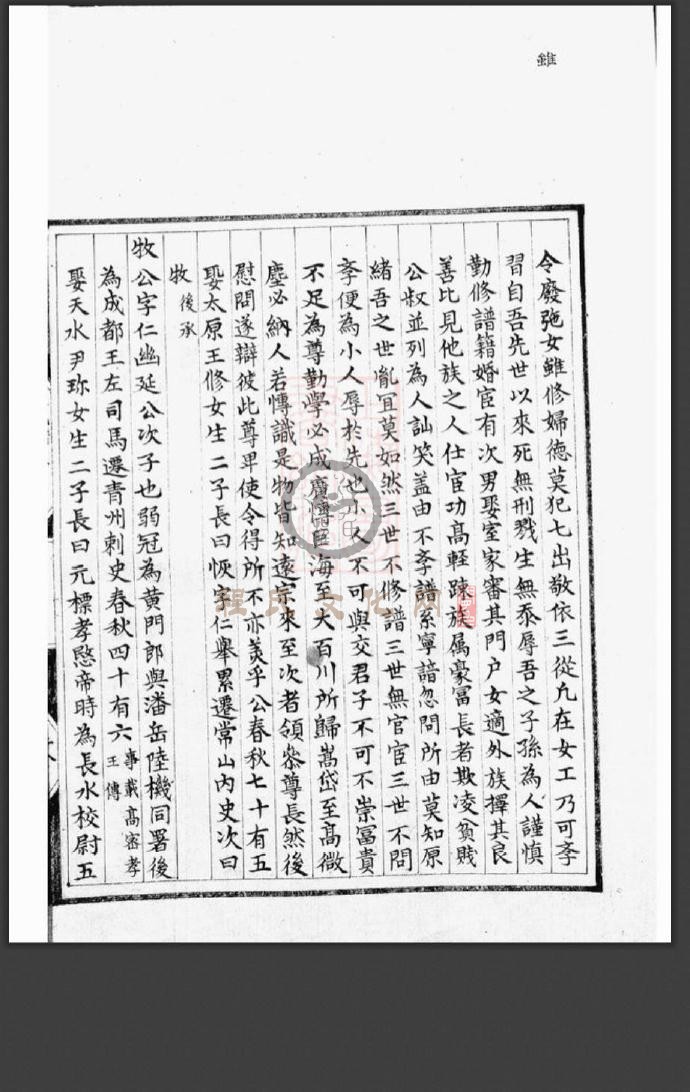 雖
令廢弛女雖修婦德莫犯七出敬依三從凢在女工乃可孝
習自吾先世以來死無刑戮生無忝辱吾之子孫為人謹慎
勤修譜籍婚宦有次男娶室家審其門户女適外族擇其良
善比見他族之人仕宦功髙輕踈族属豪冨長者欺凌貧賤
公叔並列為人訕笑盖由不孝譜系寧諳忽問所由莫知原
緒吾之世胤冝莫如然三世不修譜三世無官宦三世不問
孝便為小人辱於先也小人不可與交君子不可不崇冨貴
不足為尊勤學必成廣慱巨海至大百川所歸嵩岱至髙微
塵必納人若慱識是物皆知遠宗來至次者領叅尊長然後
慰問遂辯彼此尊卑使令得所不亦美乎公春秋七十有五
娶太原王修女生二子長曰恢字仁舉累遷常山内史次曰
牧後承
牧公字仁幽延公次子也弱冠為黄門郎與潘岳陸機同署後
為成都王左司馬遷青州刺史春秋四十有六事載髙密孝王傳
娶天水尹珎女生二子長曰元標孝愍帝時為長水校尉五
程氏文化网